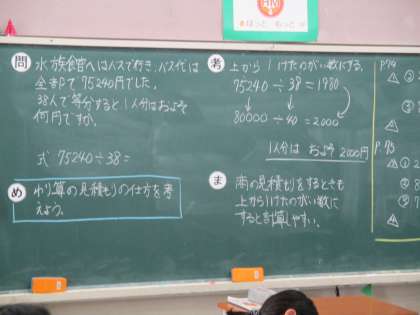 ほっと もっと
問 水族館へはバスで行き、バス代は
全部で75240円でした。
38人で等分すると1人分はおよそ
何円ですか。
式 75240÷38=
め わり算の見積もりの仕方を考
えよう。
考 上から1けたのがい数にする。
75240÷38=1980
80000÷40=2000
1人分は およそ 2000円
ま 商の見積もりをするときも
上から1けたのがい数に
すると計算しやすい。
P.74
P.75